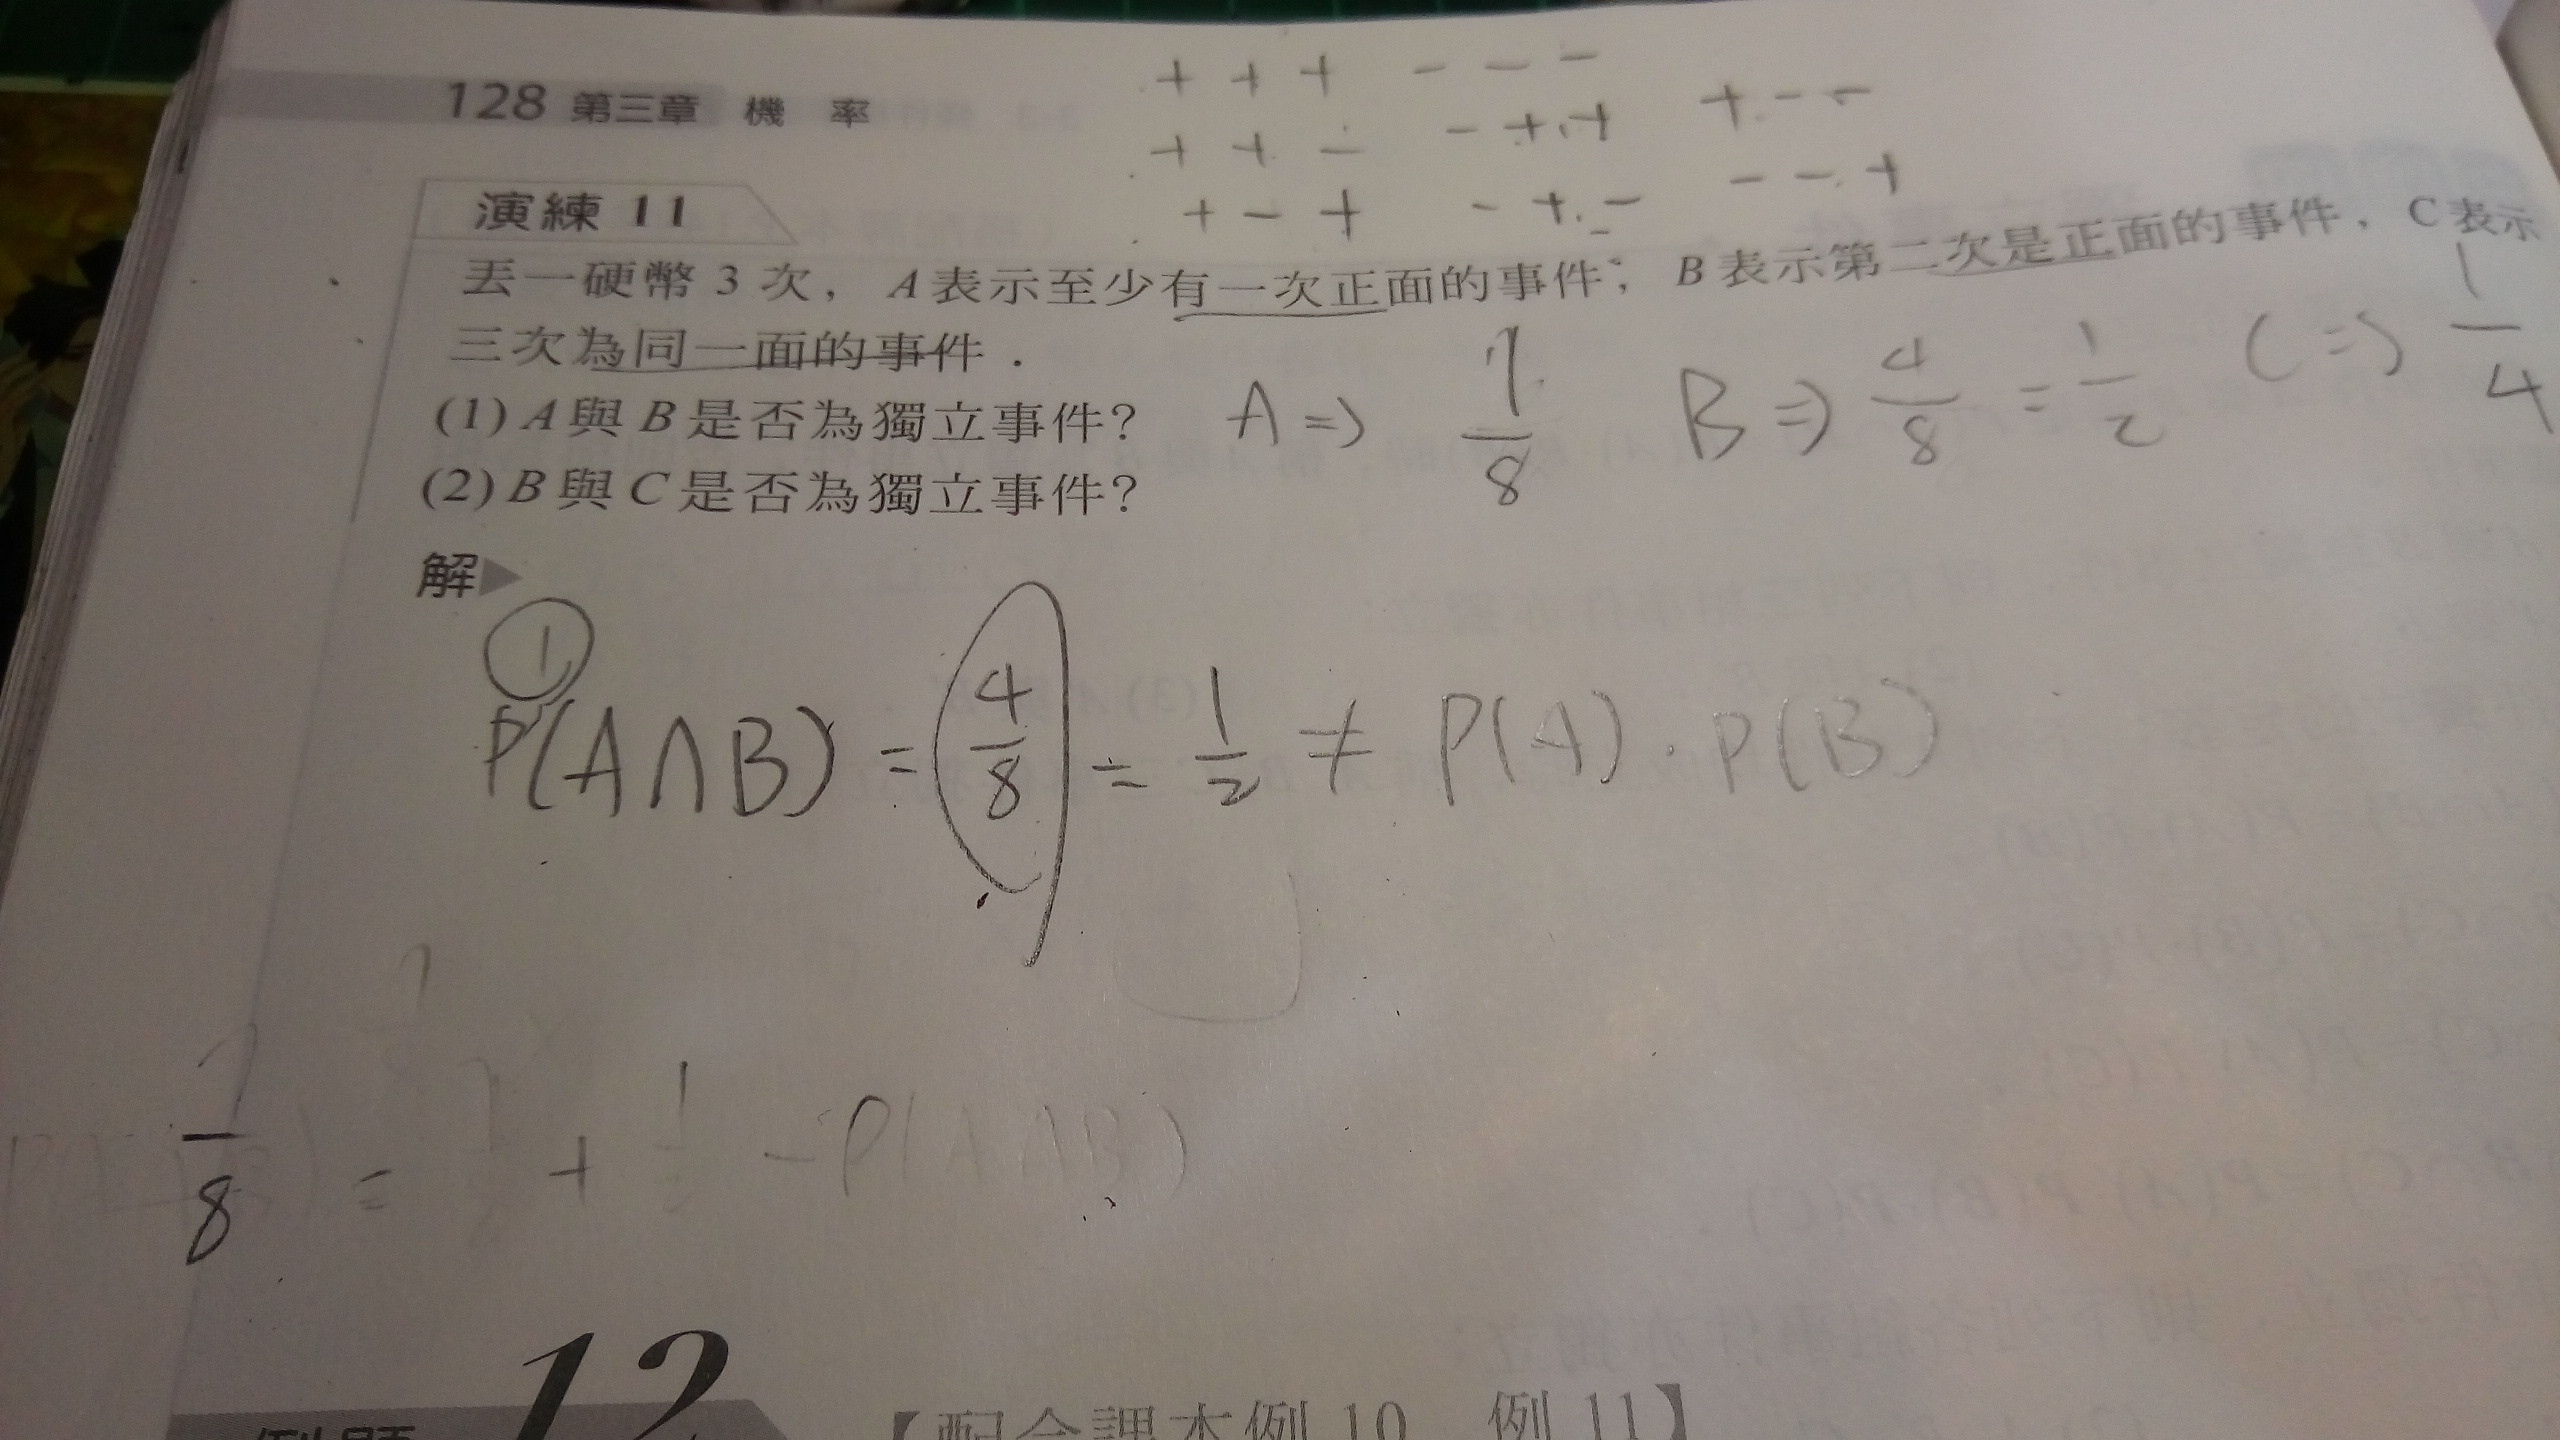 128 第三章 機 率
+ + + - - -
+ + - - + + + - -
+ - + - + - - - +
演練 11
丟一硬幣 3 次，A表示至少有一次正面的事件；B表示第二次是正面的事件，C表示
三次為同一面的事件．
(1) A與B是否為獨立事件？ A => 7/8 B => 4/8 = 1/2 C => 1/4
(2) B與C是否為獨立事件？
解▶
①
P(A∩B) = 4/8 = 1/2 ≠ P(A)·P(B)
7/8 = + - P(A∩B)
例題 12 【配合課本例 10、例 11】